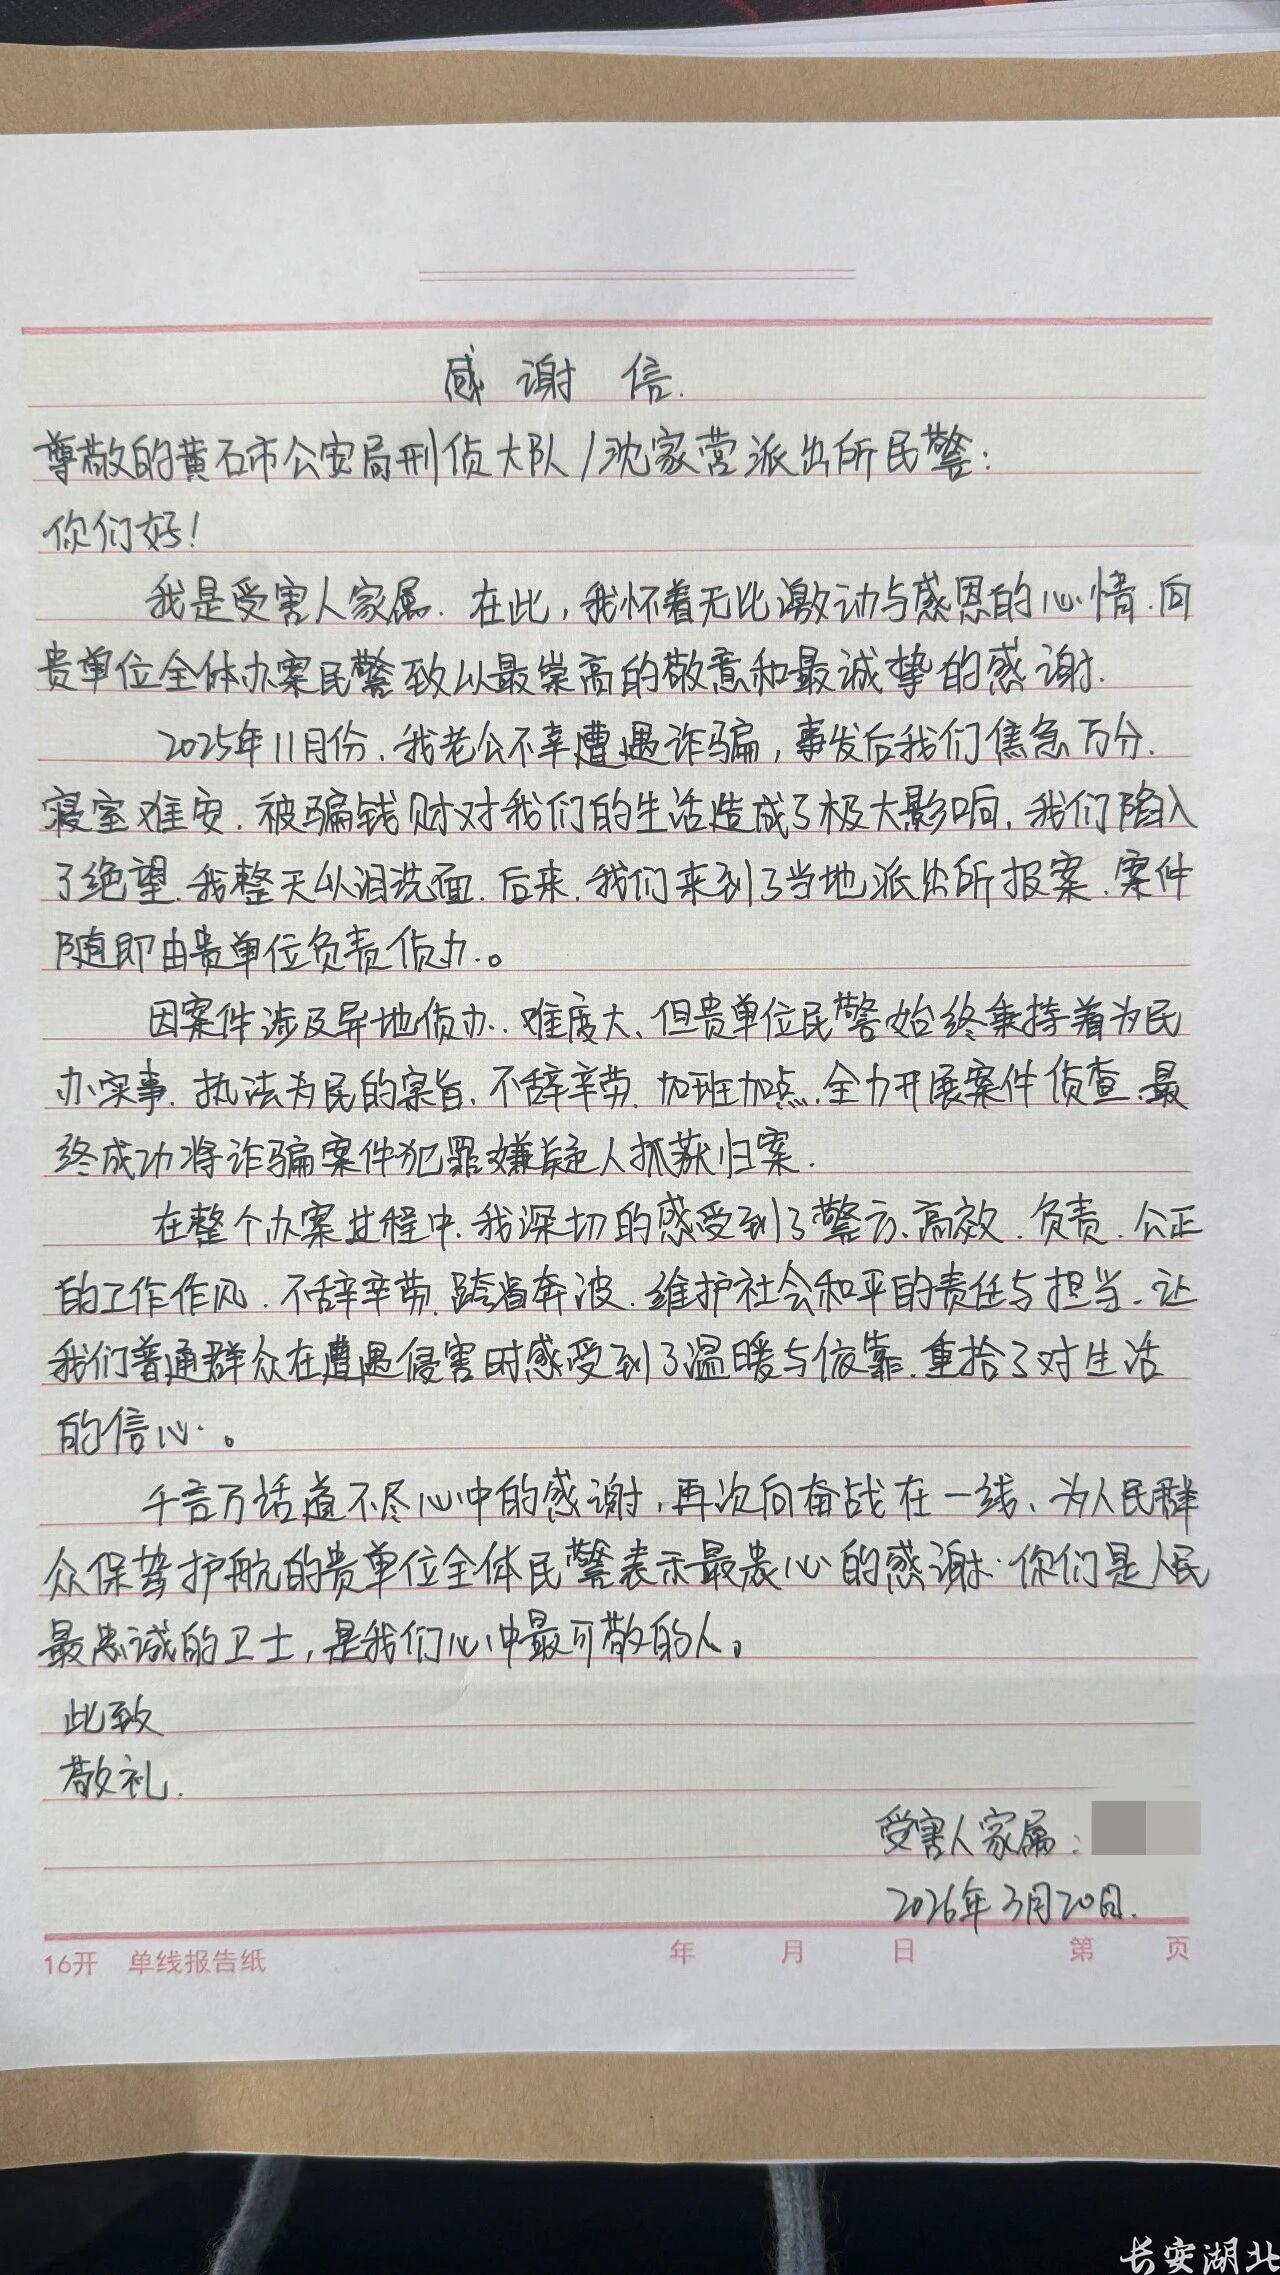 感谢信.
尊敬的黄石市公安局刑侦大队/沈家营派出所民警:
你们好!
我是受害人家属.在此,我怀着无比激动与感恩的心情.向
贵单位全体办案民警致以最崇高的敬意和最诚挚的感谢.
2025年11月份.我老公不幸遭遇诈骗,事发后我们焦急万分.
寝室难安.被骗钱财对我们的生活造成了极大影响.我们陷入
了绝望.我整天以泪洗面.后来.我们来到了当地派出所报案.案件
随即由贵单位负责侦办.。
因案件涉及异地侦办..难度大、但贵单位民警始终秉持着为民
办实事.执法为民的宗旨.不辞辛劳.加班加点.全力开展案件侦查.最
终成功将诈骗案件犯罪嫌疑人抓获归案.
在整个办案过程中.我深切的感受到了警方、高效.负责.公正
的工作作风.不辞辛劳.跨省奔波.维护社会和平的责任与担当.让
我们普通群众在遭遇侵害时感受到了温暖与依靠.重拾了对生活
的信心.。
千言万语道不尽心中的感谢,再次向奋战在一线、为人民群
众保驾护航的贵单位全体民警表示最衷心的感谢.你们是人民
最忠诚的卫士,是我们心中最可敬的人。
此致
敬礼.
受害人家属:
2026年3月20日.
16开 单线报告纸 年 月 日 第 页
长安湖北